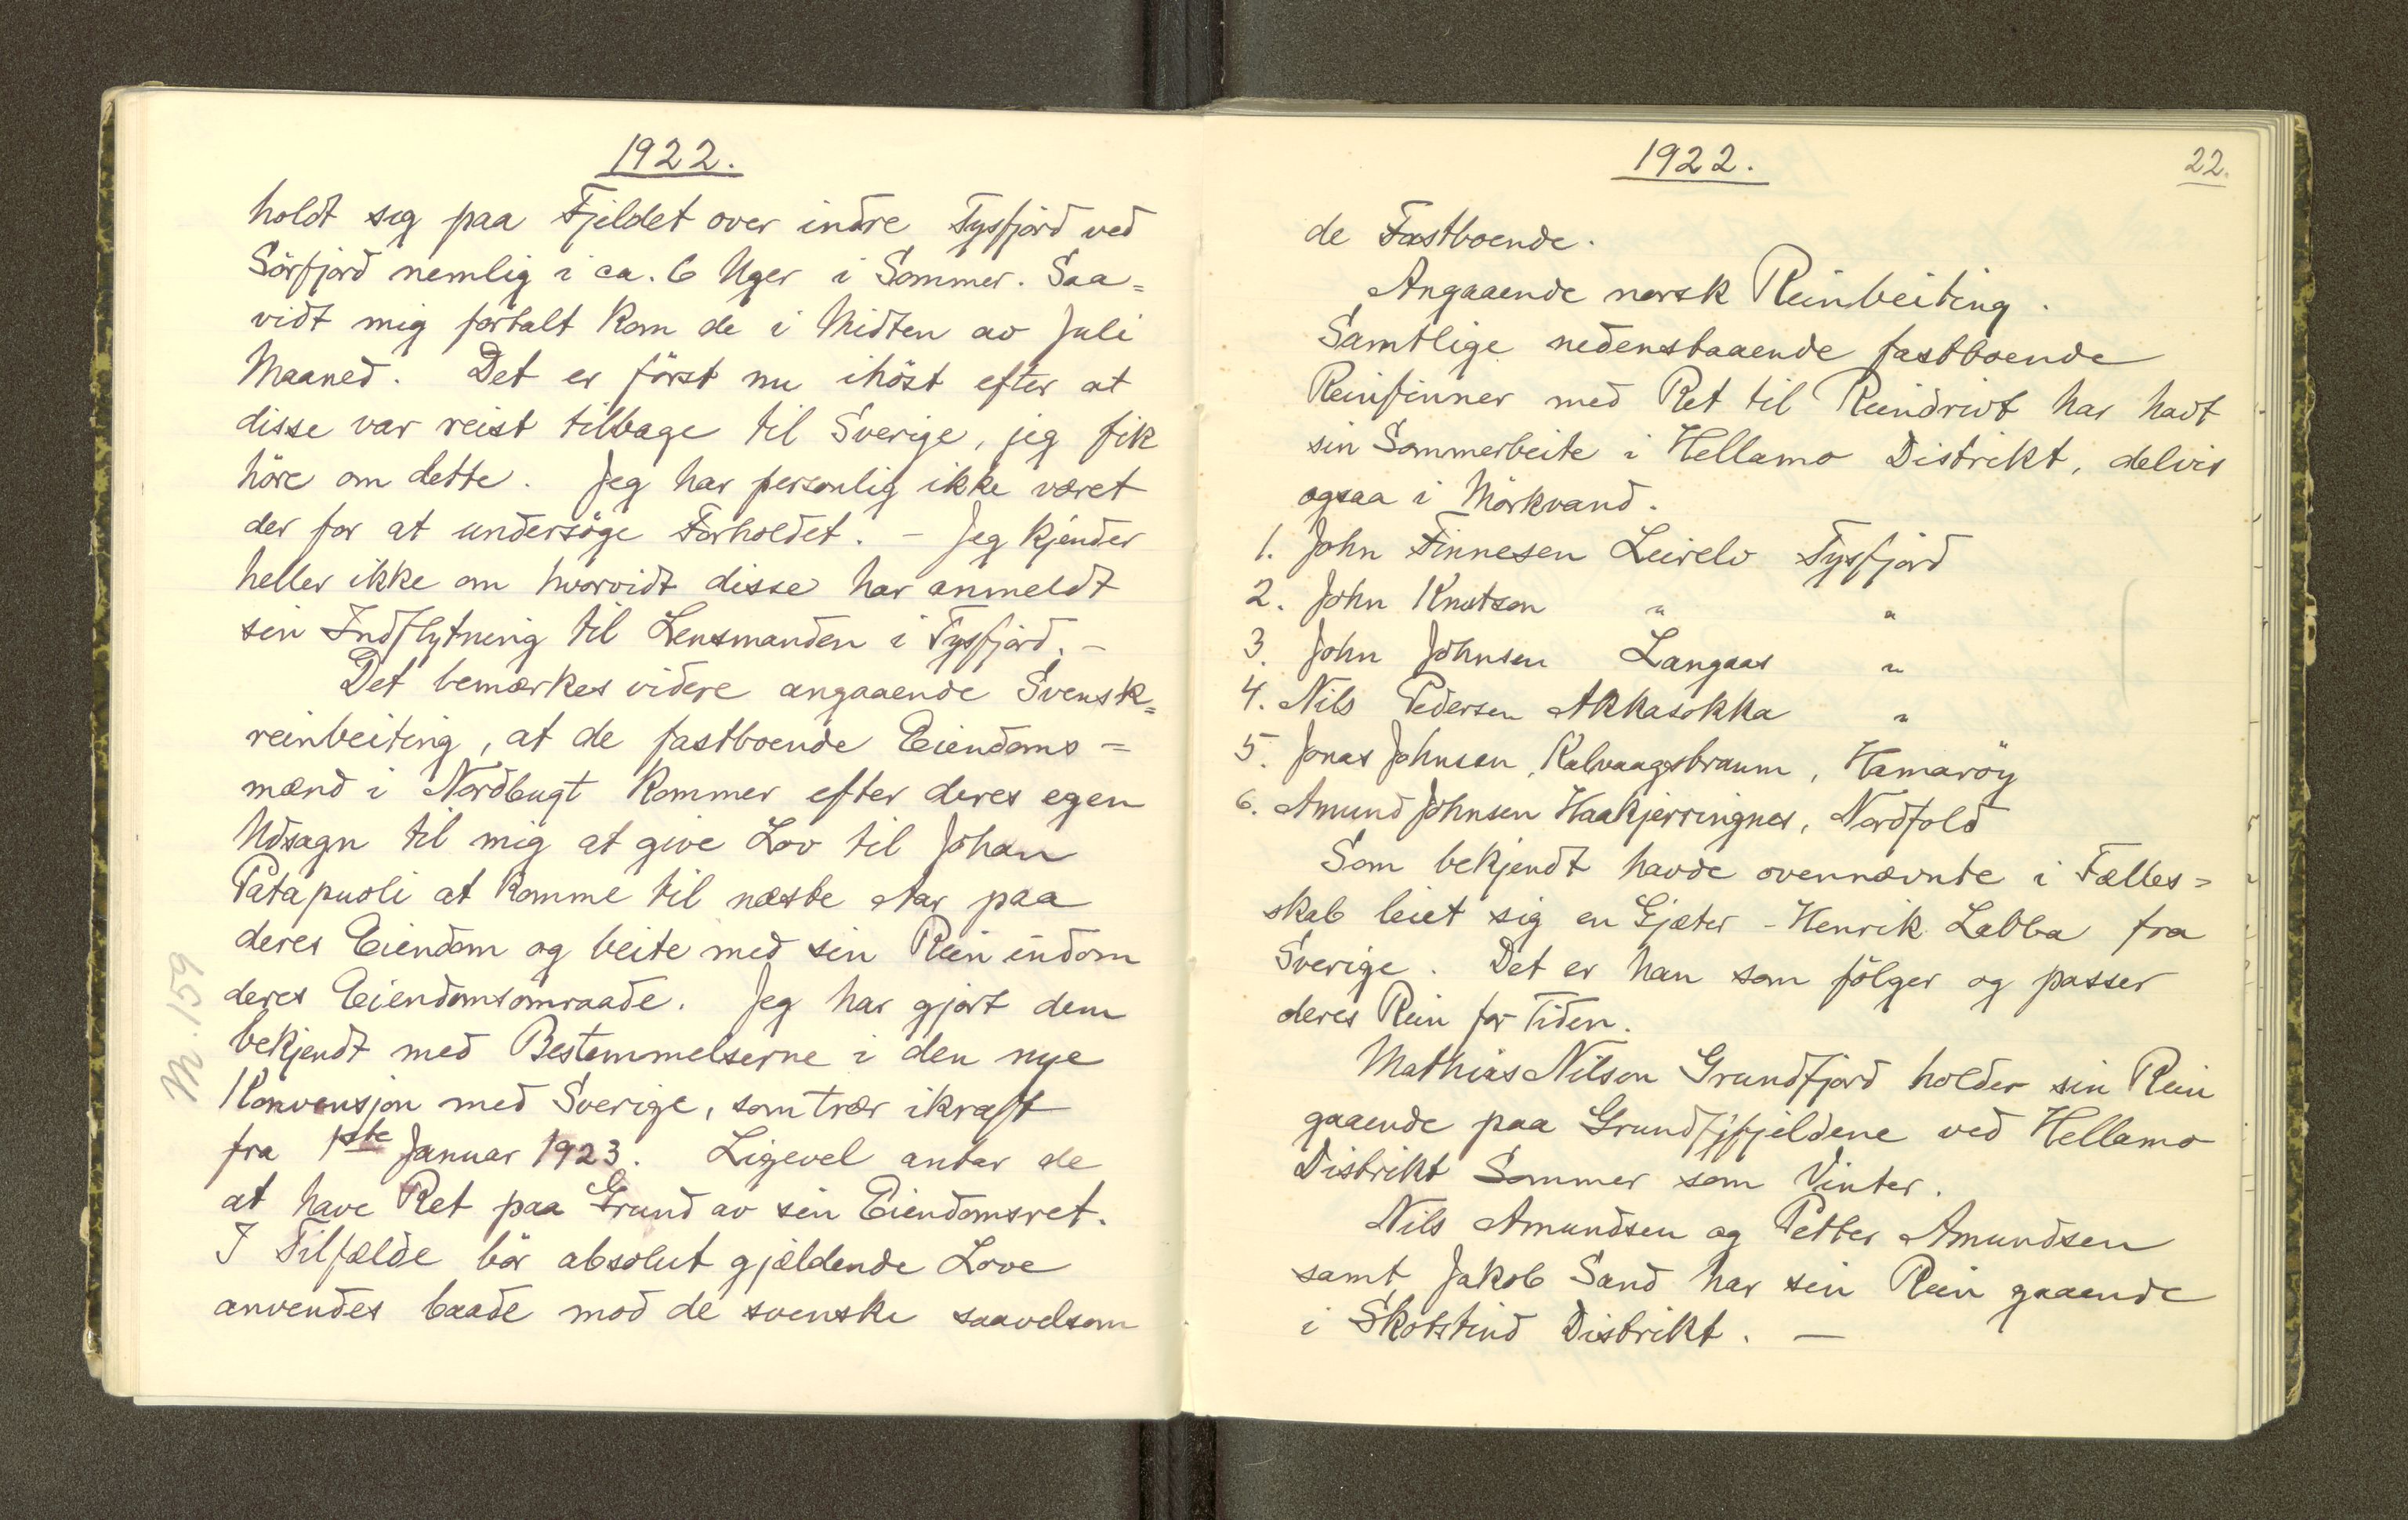 1922.
holdt sig paa Fjeldet over indre Tysfjord ved
Sörfjord nemlig i ca. 6 Uger i Sommer. Saa=
vidt mig fortalt kom de i Midten av Juli
Maaned. Det er först nu ihöst efter at
disse var reist tilbage til Sverige, jeg fik
höre om dette. Jeg har personlig ikke været
der for at undersöge Forholdet. – Jeg kjender
heller ikke om hvorvidt disse har anmeldt
sin Indflytning til Lensmanden i Tysfjord. –
Det bemærkes videre angaaende Svensk=
reinbeiting, at de fastboende Eiendoms=
mænd i Nordbugt kommer efter deres egen
Udsagn til mig at give Lov til Johan
Patapuoli at komme til næste Aar paa
deres Eiendom og beite med sin Rein indom
deres Eiendomsomraade. Jeg har gjort dem
bekjendt med Bestemmelserne i den nye
Konvensjon med Sverige, som trær ikraft
fra 1ste Januar 1923. Ligevel antar de
at have Ret paa Grund av sin Eiendomsret.
I Tilfælde bör absolut gjældende Love
anvendes baade mod de svenske saavelsom
M. 159
1922.
22.
de Fastboende.
Angaaende norsk Reinbeiting.
Samtlige nedenstaaende fastboende
Reinfinner med Ret til Reindrivt har havt
sin Sommerbeite i Hellamo Distrikt, delvis
ogsaa i Mörkvand.
1. John Finnesen Leirelv Tysfjord
2. John Knutsen " "
3. John Johnsen Langaas "
4. Nils Pedersen Akkasokka "
5. Jonas Johnsen, Kalvaagstraum, Hamaröy
6. Amund Johnsen Haakjerringnes, Nordfold
Som bekjendt havde ovennævnte i Fælles=
skab leiet sig en Gjæter - Henrik Labba fra
Sverige. Det er han som fölger og passer
deres Rein for Tiden.
Mathias Nilsen Grundfjord holder sin Rein
gaaende paa Grundfjfjeldene ved Hellamo
Distrikt Sommer som Vinter.
Nils Amundsen og Petter Amundsen
samt Jakob Sand har sin Rein gaaende
i Skotstind Distrikt. –